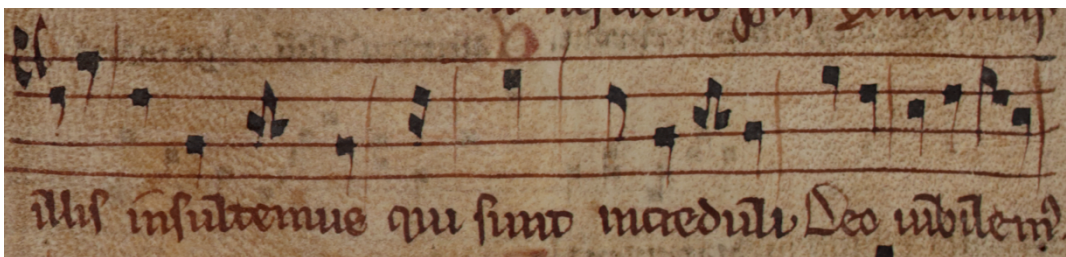 illis insultemus qui sunt increduli Deo iubilem⁹